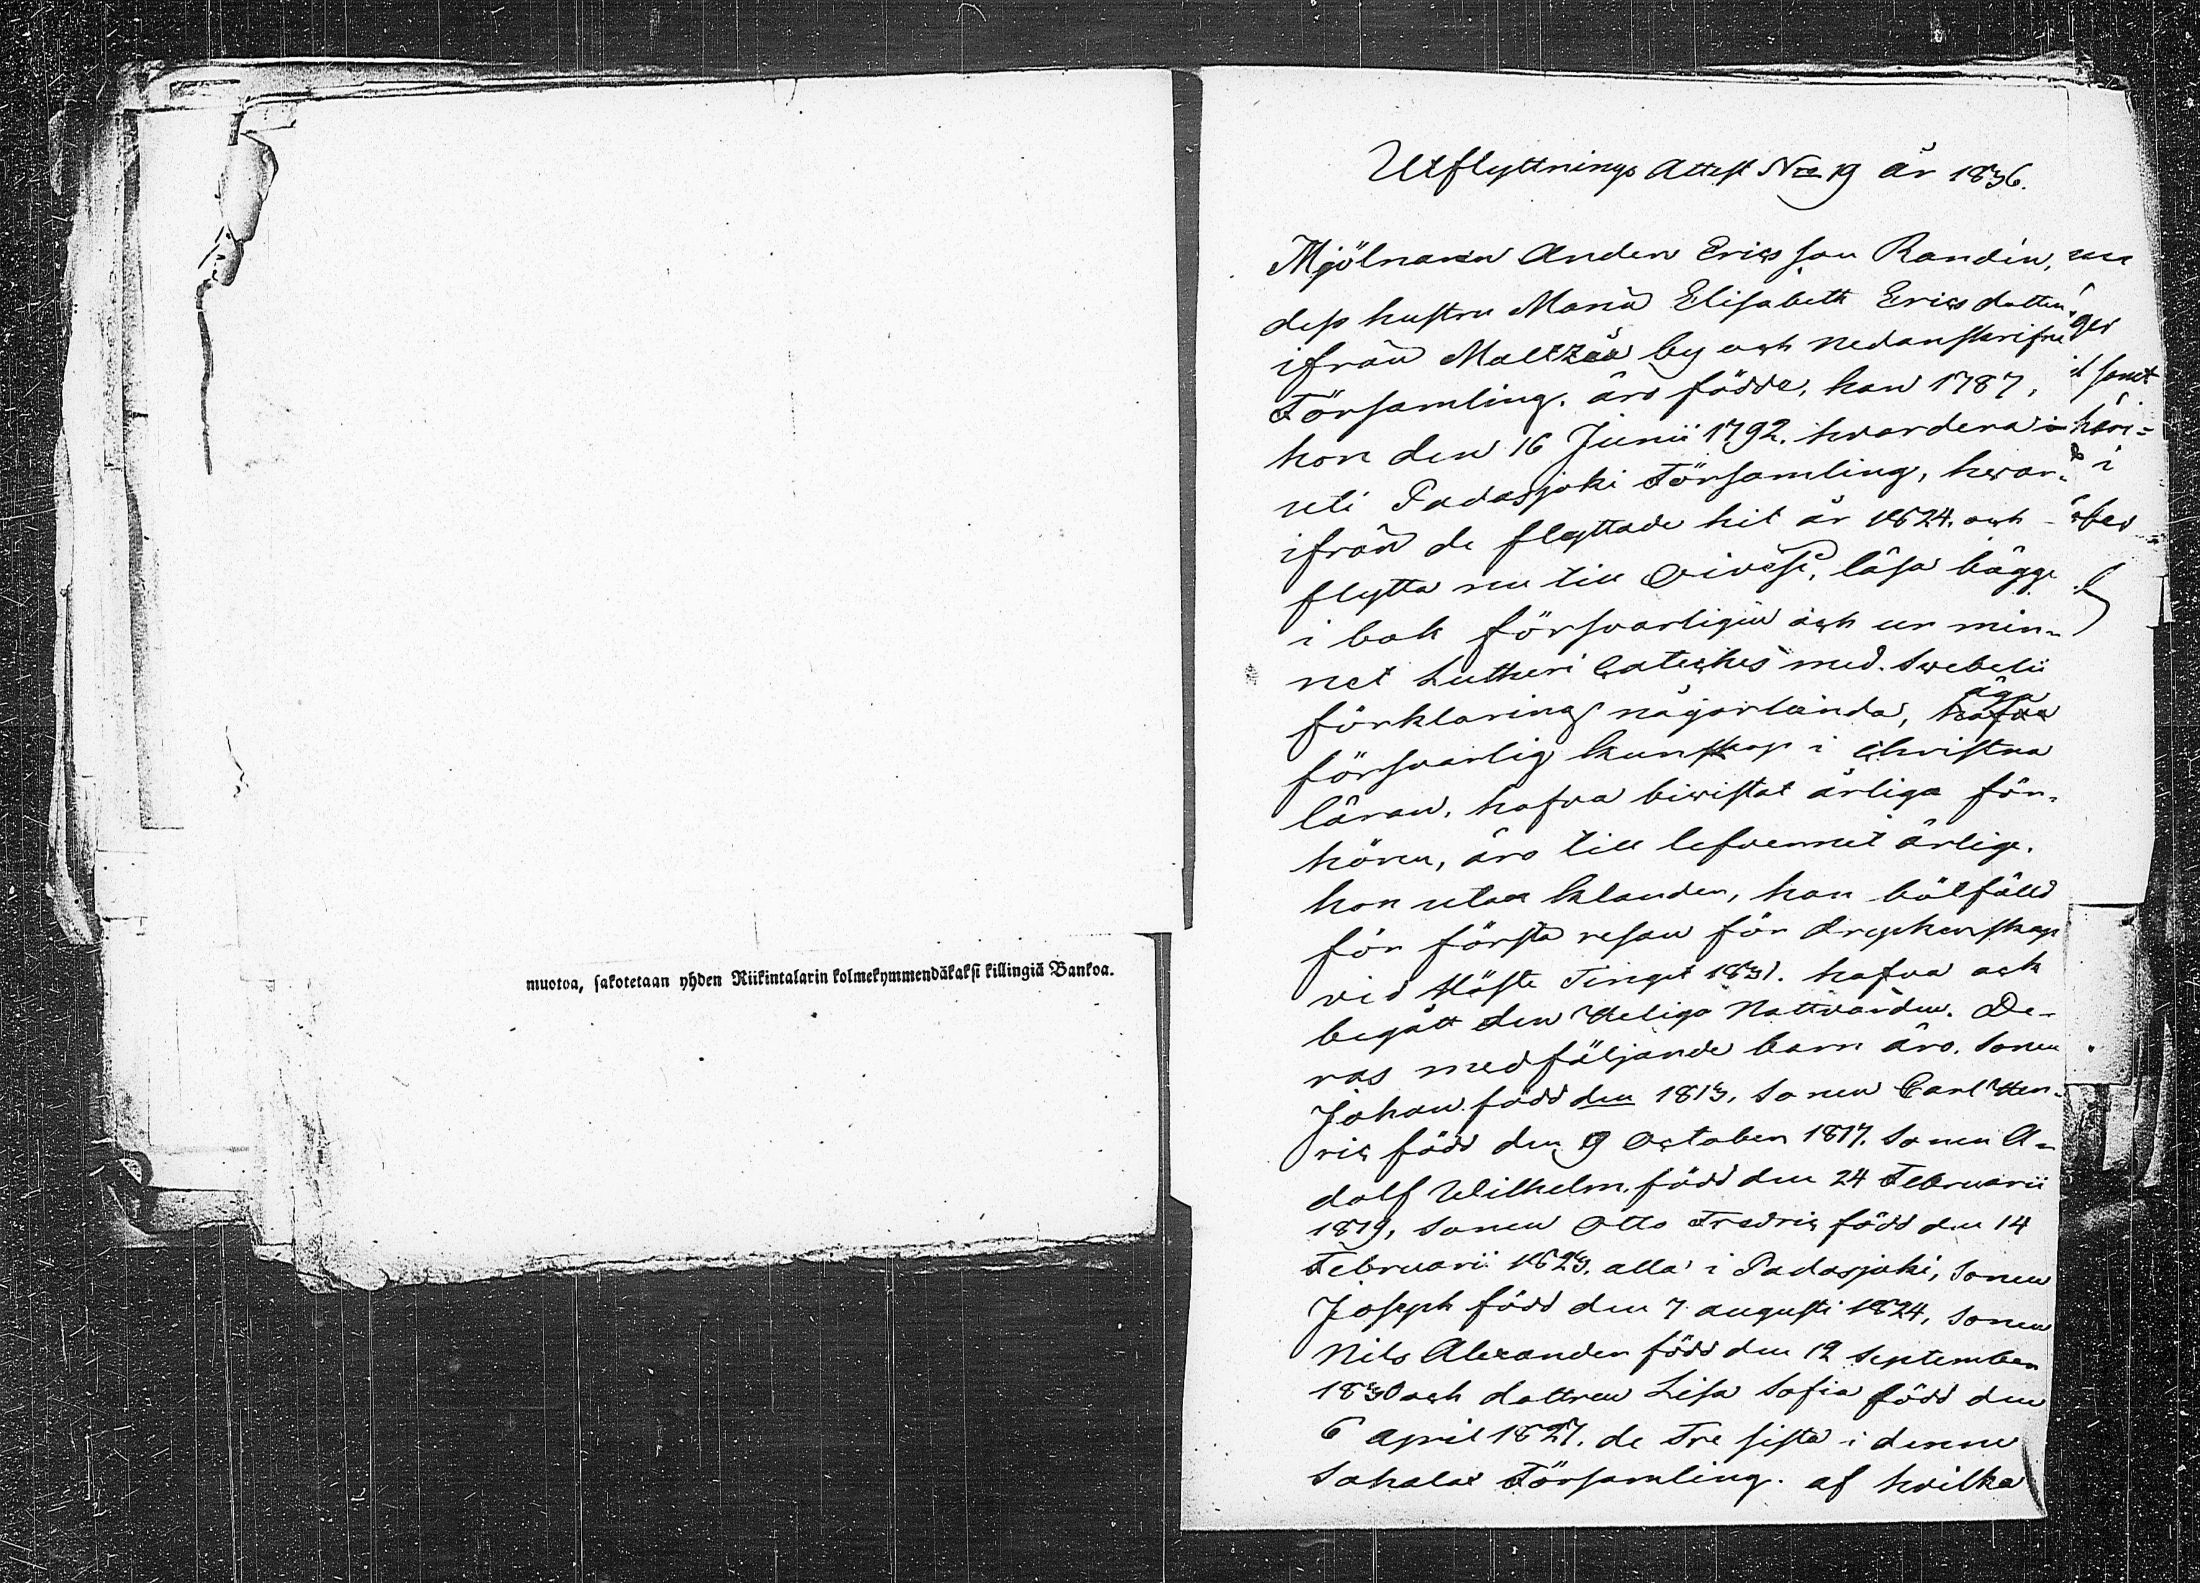 muotoa, sakotetaan yhden Riikintalarin kolmekymmendäkaksi killingiä Bankoa.
Utflyttnings Attest No 19 år 1836.
Mjölnaren Anders Ericsson Randin,
dess hustru Maria Elisabeth Ericsdotter,
ifrån by och nedanskrifne
Församling. äro födde, han 1787,
hon den 16 Junii 1792. hvardera in
uti Padasjoki Församling, hvar-
ifrån de flyttade hit år 1824. och
flytta nu till läsa bägge
i bok försvarligen och ur min-
net Lutheri Cateches med Swebelii
förklaring någorlunda, äga
försvarlig kunskap i christna
läran, hafva bivistat årliga för-
hören, äro till lefvernet ärlige.
hon utan klander, han bötfälld
för första resan för dryckenskap
vid Höste Tinget 1831. hafva ock
begått den Heliga Nattvarden. De-
ras medföljande barn äro. Sonen
Johan född den 1813, Sonen Carl Hen-
ric född den 9 October 1817. Sonen A-
dolf Wilhelm född den 24 Februarii
1819, Sonen Otto Fredric född den 14
Februarii 1823. alla i Padasjoki, Sonen
Joseph född den 7 augusti 1824, Sonen
Nils Alexander född den 12 September
1830 och dottren Lisa Sofia född den
6 April 1827. de Tre sista i denne
Sahalax Församling. af hvilka